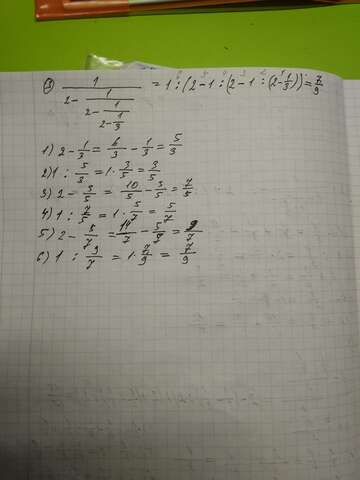 ③ 1/(2 - 1/(2 - 1/(2 - 1/3))) = 1 : (2 - 1 : (2 - 1 : (2 - 1/3))) = 7/9
1) 2 - 1/3 = 6/3 - 1/3 = 5/3
2) 1 : 5/3 = 1 · 3/5 = 3/5
3) 2 - 3/5 = 10/5 - 3/5 = 7/5
4) 1 : 7/5 = 1 · 5/7 = 5/7
5) 2 - 5/7 = 14/7 - 5/7 = 9/7
6) 1 : 9/7 = 1 · 7/9 = 7/9